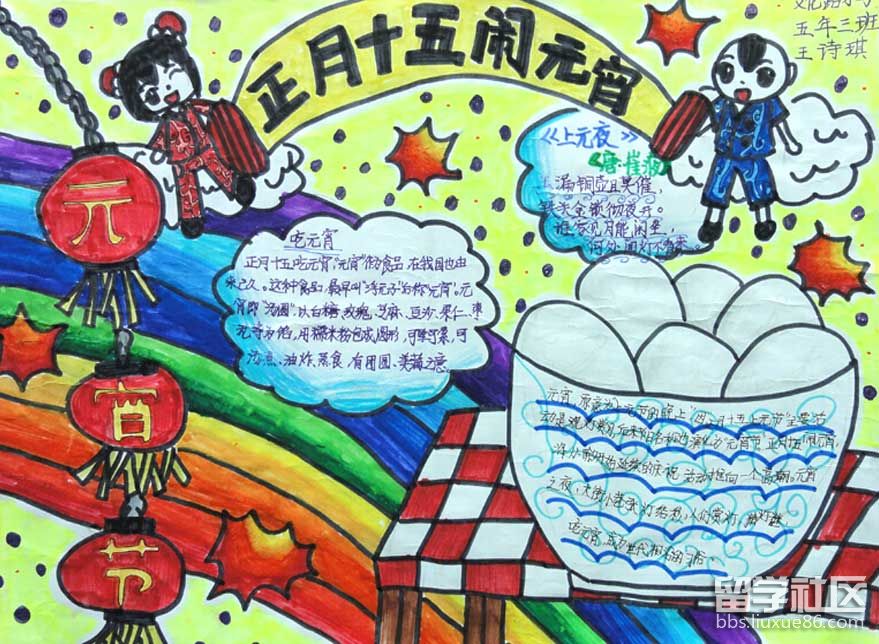 正月十五闹元宵
五年三班
王诗琪
元
宵
节
《上元夜》
《唐·崔液》
玉漏铜壶且莫催,
铁关金锁彻夜开。
谁家见月能闲坐,
何处闻灯不看来。
吃元宵
正月十五吃元宵,"元宵"作为食品,在我国也由
来已久。这种食品,最早叫"浮元子"后称"元宵"。元
宵即"汤圆",以白糖、玫瑰、芝麻、豆沙、果仁、枣
泥等为馅,用糯米粉包成圆形,可荤可素,可
汤煮、油炸、蒸食,有团圆、美满之意。
元宵,原意为"上元节的晚上",因正月十五"上元节"主要活
动是观灯赏月,后来节日名称也演化为"元宵节"。正月十五闹元宵,
将从除夕开始延续的庆祝活动推向一个高潮。元宵
之夜,大街小巷张灯结彩,人们赏灯,猜灯谜,
吃元宵,成为世代相沿的习俗。
留学社区
bbs.liuxue86.com